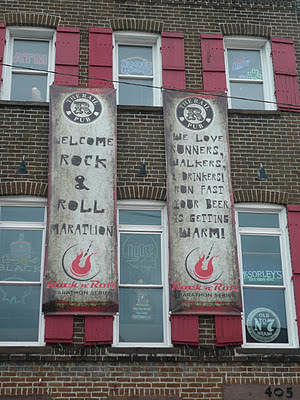 THE RAIL
R
PUB
WELCOME
ROCK
&
ROLL
MARATHON
Rock'n'Roll
MARATHON SERIES
THE RAIL
R
PUB
WE LOVE
RUNNERS,
WALKERS,
& DRINKERS!
RUN FAST
YOUR BEER
IS GETTING
WARM!
Rock'n'Roll
MARATHON SERIES
BLACK
McSORLEY'S
OLD
No 7
405